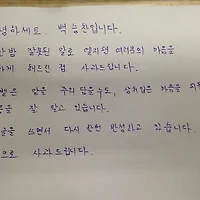 녕하세요. 백승찬입니다.
한밤 잘못된 말로 여러분의 마음을
하게 해드린 점 사과드립니다.
말을 주워 담을 수도, 상처입은 마음을
잘 알고 있습니다.
글을 쓰면서 다시 한번 반성하고 있습니다.
으로 사과드립니다.